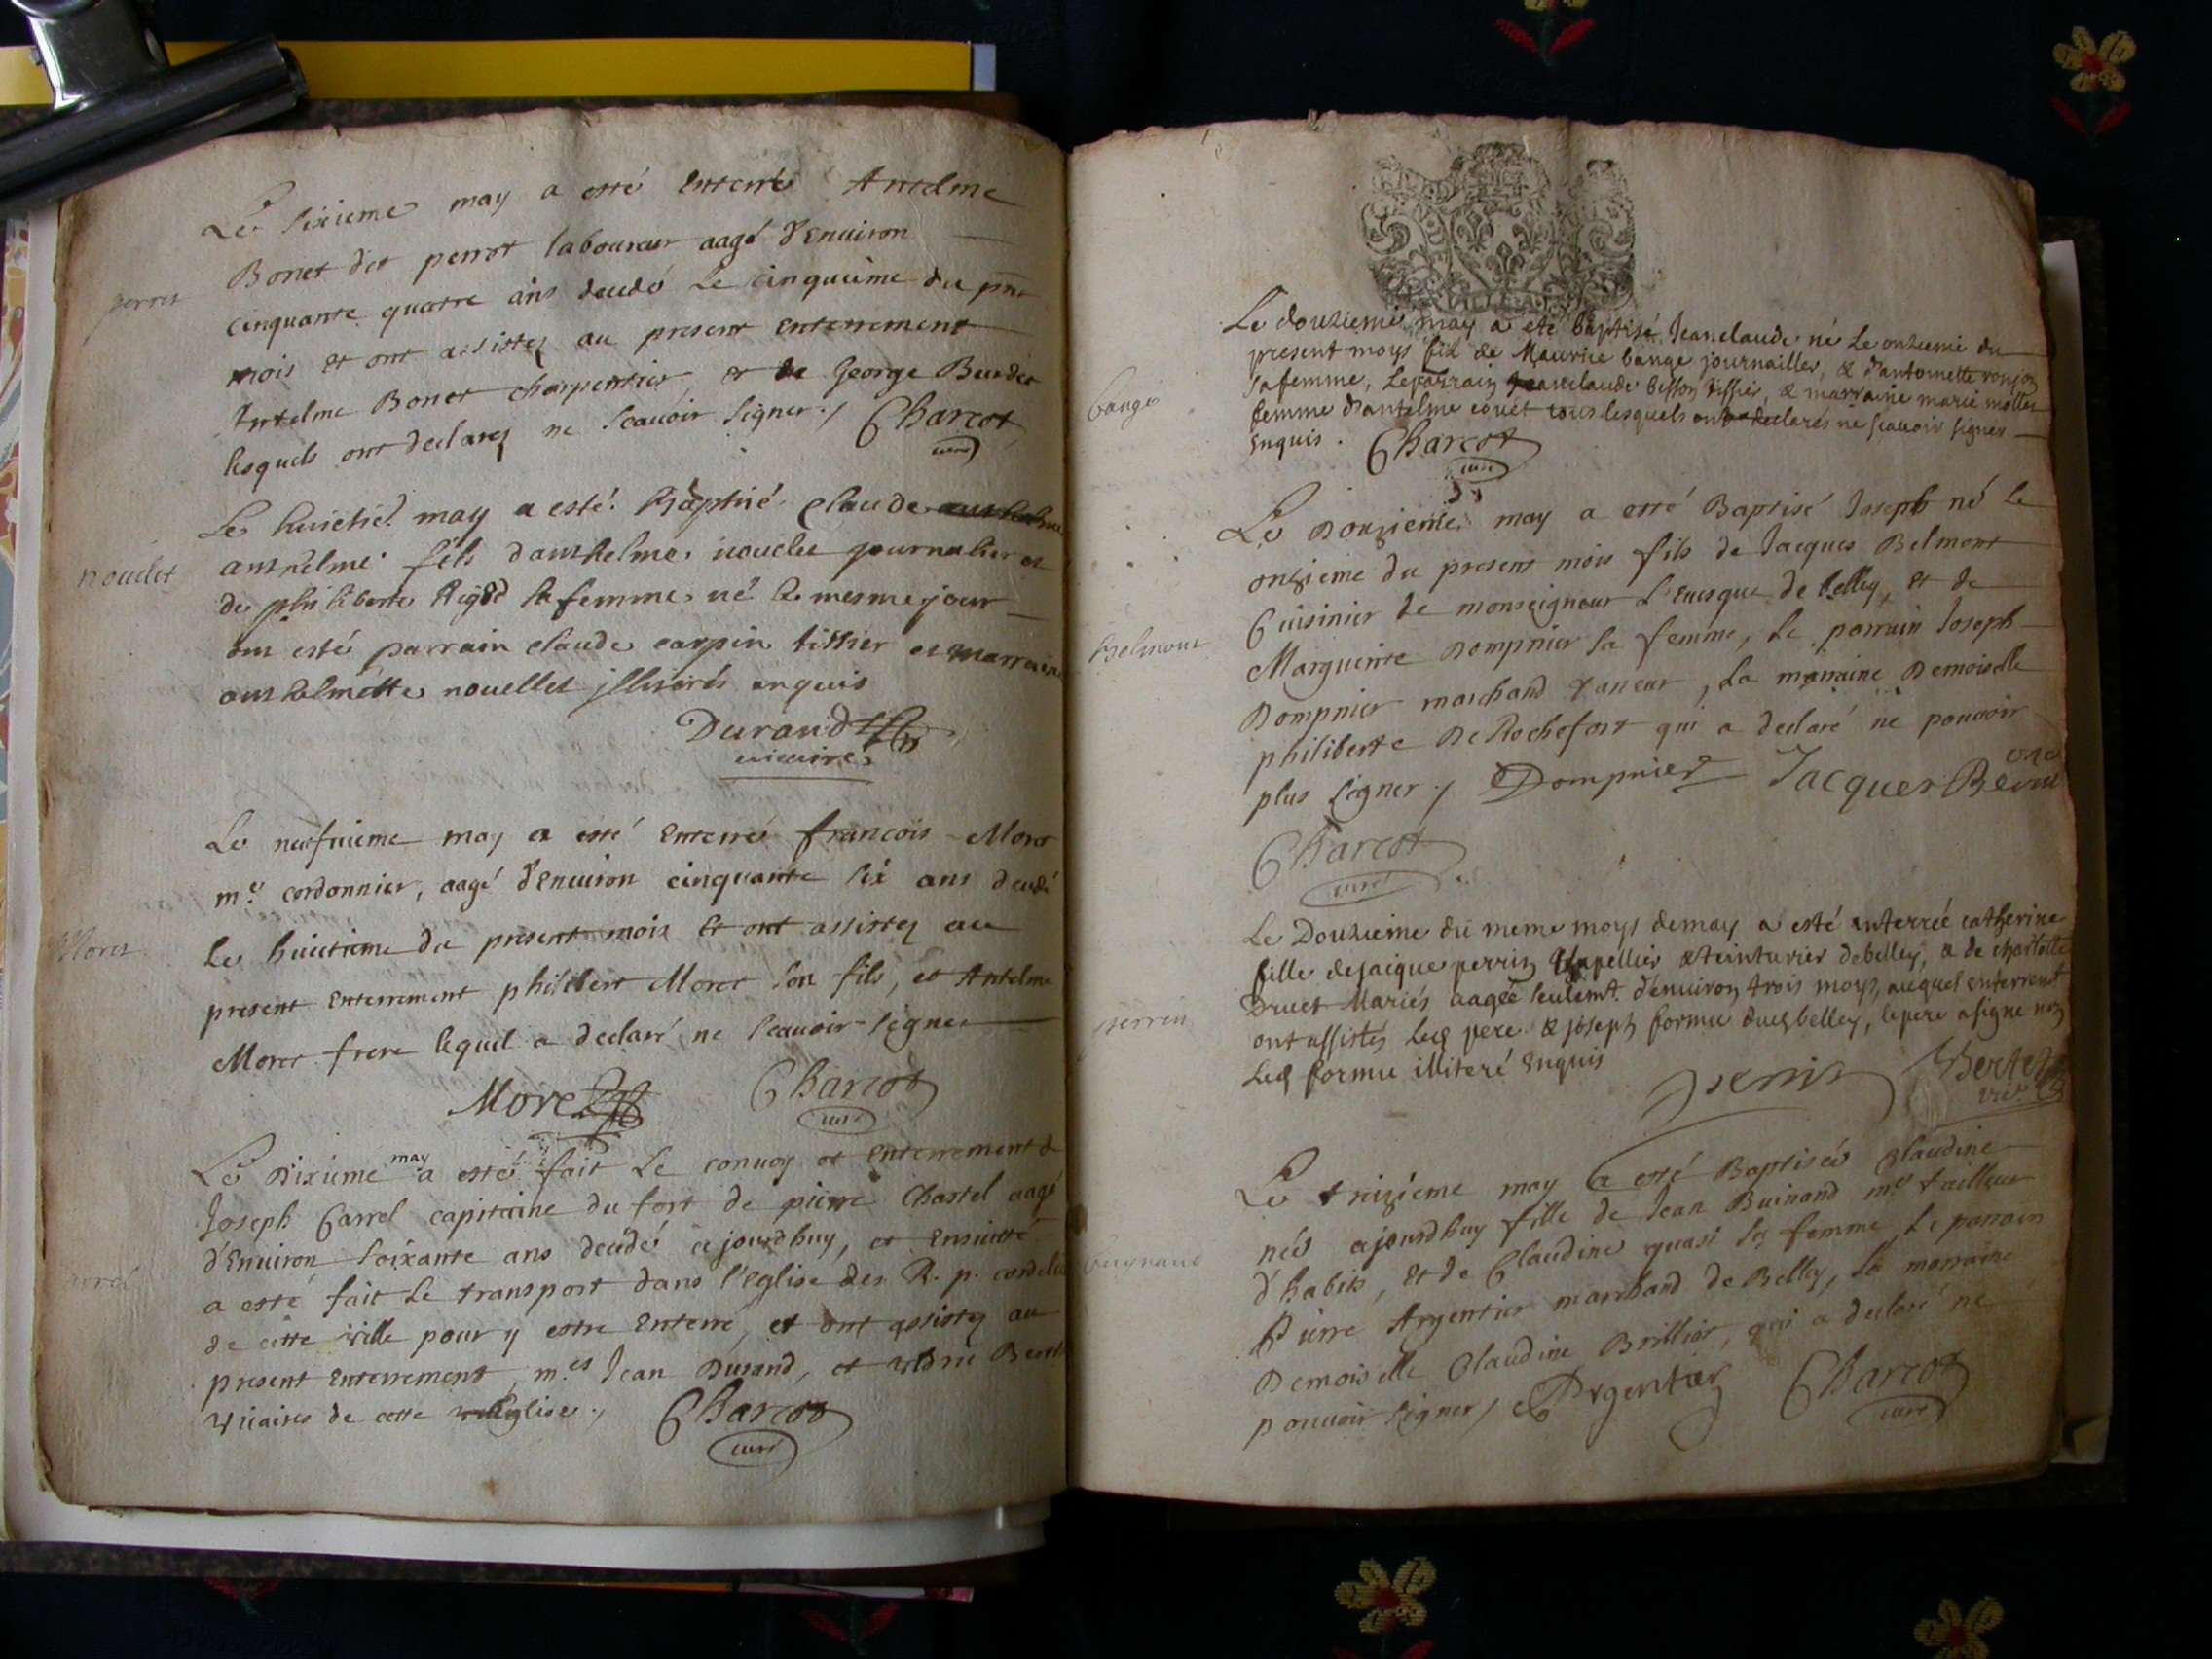 Le sixieme may a esté enterré Antelme
Bonet dit perrot laboureur aagé d'enuiron
perrot
cinquante quatre ans decedé le cinquieme du pnt
mois et ont assistez au present enterrement
Antelme Bonet charpentier, et de George
lesquels ont declarez ne scauoir signer ./. Charcot
curé
Le huictie. may a esté Baptisé claude
anthelme fils danthelme nouelet journalier et
nouelet
de philiberte Rigod sa femme né le mesme jour
ont esté parrain claude carpin tissier et marraine
anthelmette nouellet jlliterés enquis
Durand
vicaire
Le neufuieme may a esté enterré francois Moret
me. cordonnier, aagé d'enuiron cinquante six ans decedé
Moret
le huictieme du present mois et ont assistez au
present enterrement philibert Moret son fils, et Antelme
Moret frere lequel a declaré ne scauoir signer
Moret Charcot
curé
Le Dixieme may a esté fait le conuoy et enterrement de
Joseph Carrel capitaine du fort de pierre Chastel aagé
d'enuiron soixante ans decedé ajourdhuy, et ensuitte
a esté fait le transport dans l'eglise des R. p. cordeliers
de cette ville pour y estre enterré, et ont assistez au
present enterrement, mes. Jean Durand, et
vicaires de cette eglise ./. Charcot
curé
Le douzieme may a eté baptisé Jean claude né le onzieme du
present moys fils de Maurice bange journaillier, & d'antoinette
bange
sa femme, le parrain Jean claude bisson tissier, & marraine marie mollet
femme d'antelme couet tous lesquels ont declarés ne scauoir signer
enquis . Charcot
curé
Le Douzieme may a esté Baptisé Joseph né le
onzieme du present mois fils de Jacques Belmont
Cuisinier de monseigneur l'euesque de belley, et de
Belmont
Marguerite Dompnier sa femme, le parrain Joseph
Dompnier marchand taneur, la marraine Demoiselle
philiberte De Rochefort qui a declaré ne pouuoir
plus signer ./. Dompnier Jacques
Charcot
curé
Le Douzieme du meme moys de may a esté enterrée catherine
fille de jaique perrin chapellier & teinturier de belley, & de charlotte
Druet Mariés aagée seulemt. d'enuiron trois moys, auquel enterremt
perrin
ont assistés led pere & joseph formu dud belley, le pere a signé non
led formu illiteré enquis
perrin Bertet
vic.
Le treizieme may a esté Baptisée Claudine
née ajourdhuy fille de Jean Buinand me tailleur
d'habits, et de Claudine quasi sa femme, le parrain
Pierre Argentier marchand de Belley, la marraine
Demoiselle Claudine Brilliat, qui a declaré ne
pouuoir signer / Argentier Charcot
curé